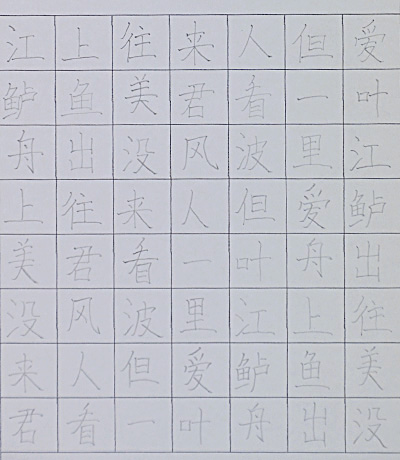 江上往来人但爱
鲈鱼美君看一叶
舟出没风波里江
上往来人但爱鲈
美君看一叶舟出
没风波里江上往
来人但爱鲈鱼美
君看一叶舟出没